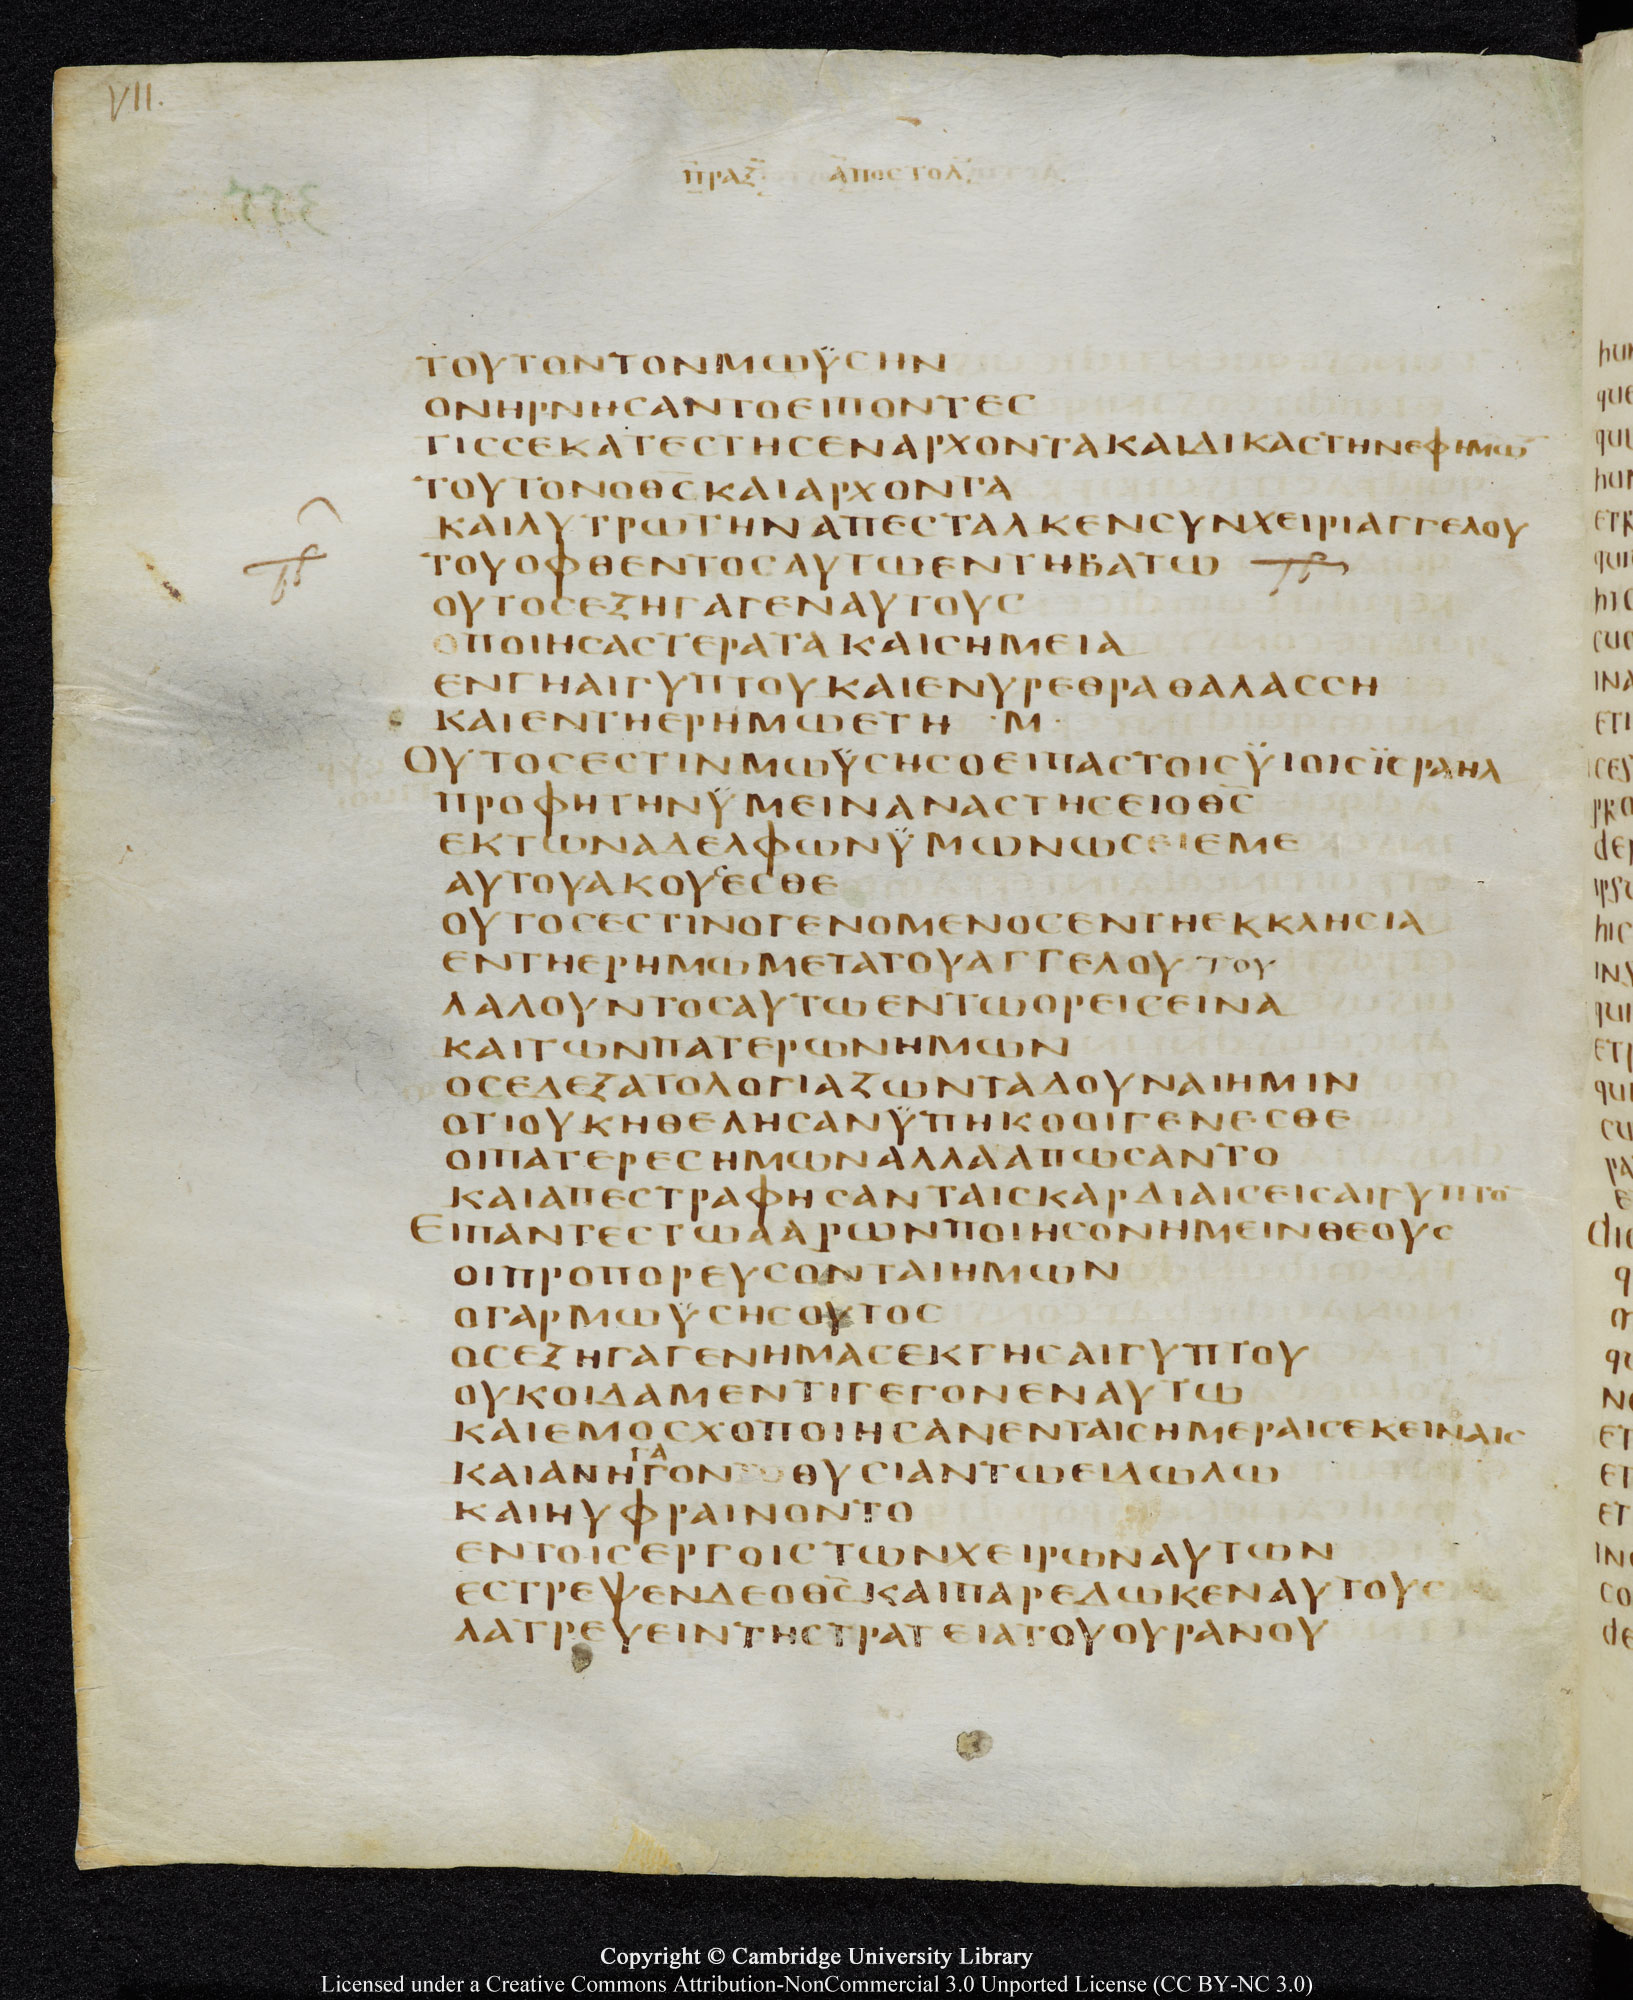 VII.
ΠΡΑΞ ΑΠΟϹΤΟΛ
ΤΟΥΤΟΝΤΟΝΜΩΫϹΗΝ
ΟΝΗΡΝΗϹΑΝΤΟΕΙΠΟΝΤΕϹ
ΤΙϹϹΕΚΑΤΕϹΤΗϹΕΝΑΡΧΟΝΤΑΚΑΙΔΙΚΑϹΤΗΝΕΦΗΜΩ̅
ΤΟΥΤΟΝΟΘ̅Ϲ̅ΚΑΙΑΡΧΟΝΤΑ
ΚΑΙΛΥΤΡΩΤΗΝΑΠΕϹΤΑΛΚΕΝϹΥΝΧΕΙΡΙΑΓΓΕΛΟΥ
ΤΟΥΟΦΘΕΝΤΟϹΑΥΤΩΕΝΤΗΒΑΤΩ
ΟΥΤΟϹΕΞΗΓΑΓΕΝΑΥΤΟΥϹ
ΟΠΟΙΗϹΑϹΤΕΡΑΤΑΚΑΙϹΗΜΕΙΑ
ΕΝΓΗΑΙΓΥΠΤΟΥΚΑΙΕΝΥΡΕΘΡΑΘΑΛΑϹϹΗ
ΚΑΙΕΝΤΗΕΡΗΜΩΕΤΗ ·Μ·
ΟΥΤΟϹΕϹΤΙΝΜΩΫϹΗϹΟΕΙΠΑϹΤΟΙϹΫΙΟΙϹΪϹΡΑΗΛ
ΠΡΟΦΗΤΗΝΫΜΕΙΝΑΝΑϹΤΗϹΕΙΟΘ̅Ϲ̅
ΕΚΤΩΝΑΔΕΛΦΩΝΫΜΩΝΩϹΕΙΕΜΕ
ΑΥΤΟΥΑΚΟΥϹΕϹΘΕ
ΟΥΤΟϹΕϹΤΙΝΟΓΕΝΟΜΕΝΟϹΕΝΤΗΕΚΚΛΗϹΙΑ
ΕΝΤΗΕΡΗΜΩΜΕΤΑΤΟΥΑΓΓΕΛΟΥΤΟΥ
ΛΑΛΟΥΝΤΟϹΑΥΤΩΕΝΤΩΟΡΕΙϹΕΙΝΑ
ΚΑΙΤΩΝΠΑΤΕΡΩΝΗΜΩΝ
ΟϹΕΔΕΞΑΤΟΛΟΓΙΑΖΩΝΤΑΔΟΥΝΑΙΗΜΙΝ
ΟΤΙΟΥΚΗΘΕΛΗϹΑΝΫΠΗΚΟΟΙΓΕΝΕϹΘΕ
ΟΙΠΑΤΕΡΕϹΗΜΩΝΑΛΛΑΑΠΩϹΑΝΤΟ
ΚΑΙΑΠΕϹΤΡΑΦΗϹΑΝΤΑΙϹΚΑΡΔΙΑΙϹΕΙϹΑΙΓΥΠΤΟ̅
ΕΙΠΑΝΤΕϹΤΩΑΑΡΩΝΠΟΙΗϹΟΝΗΜΕΙΝΘΕΟΥϹ
ΟΙΠΡΟΠΟΡΕΥϹΟΝΤΑΙΗΜΩΝ
ΟΓΑΡΜΩΫϹΗϹΟΥΤΟϹ
ΟϹΕΞΗΓΑΓΕΝΗΜΑϹΕΚΓΗϹΑΙΓΥΠΤΟΥ
ΟΥΚΟΙΔΑΜΕΝΤΙΓΕΓΟΝΕΝΑΥΤΩ
ΚΑΙΕΜΟϹΧΟΠΟΙΗϹΑΝΕΝΤΑΙϹΗΜΕΡΑΙϹΕΚΕΙΝΑΙϹ
ΓΑ
ΚΑΙΑΝΗΓΟΝΤΟΘΥϹΙΑΝΤΩΕΙΔΩΛΩ
ΚΑΙΗΥΦΡΑΙΝΟΝΤΟ
ΕΝΤΟΙϹΕΡΓΟΙϹΤΩΝΧΕΙΡΩΝΑΥΤΩΝ
ΕϹΤΡΕΨΕΝΔΕΟΘ̅Ϲ̅ΚΑΙΠΑΡΕΔΩΚΕΝΑΥΤΟΥϹ
ΛΑΤΡΕΥΕΙΝΤΗϹΤΡΑΤΕΙΑΤΟΥΟΥΡΑΝΟΥ
Copyright © Cambridge University Library
Licensed under a Creative Commons Attribution-NonCommercial 3.0 Unported License (CC BY-NC 3.0)